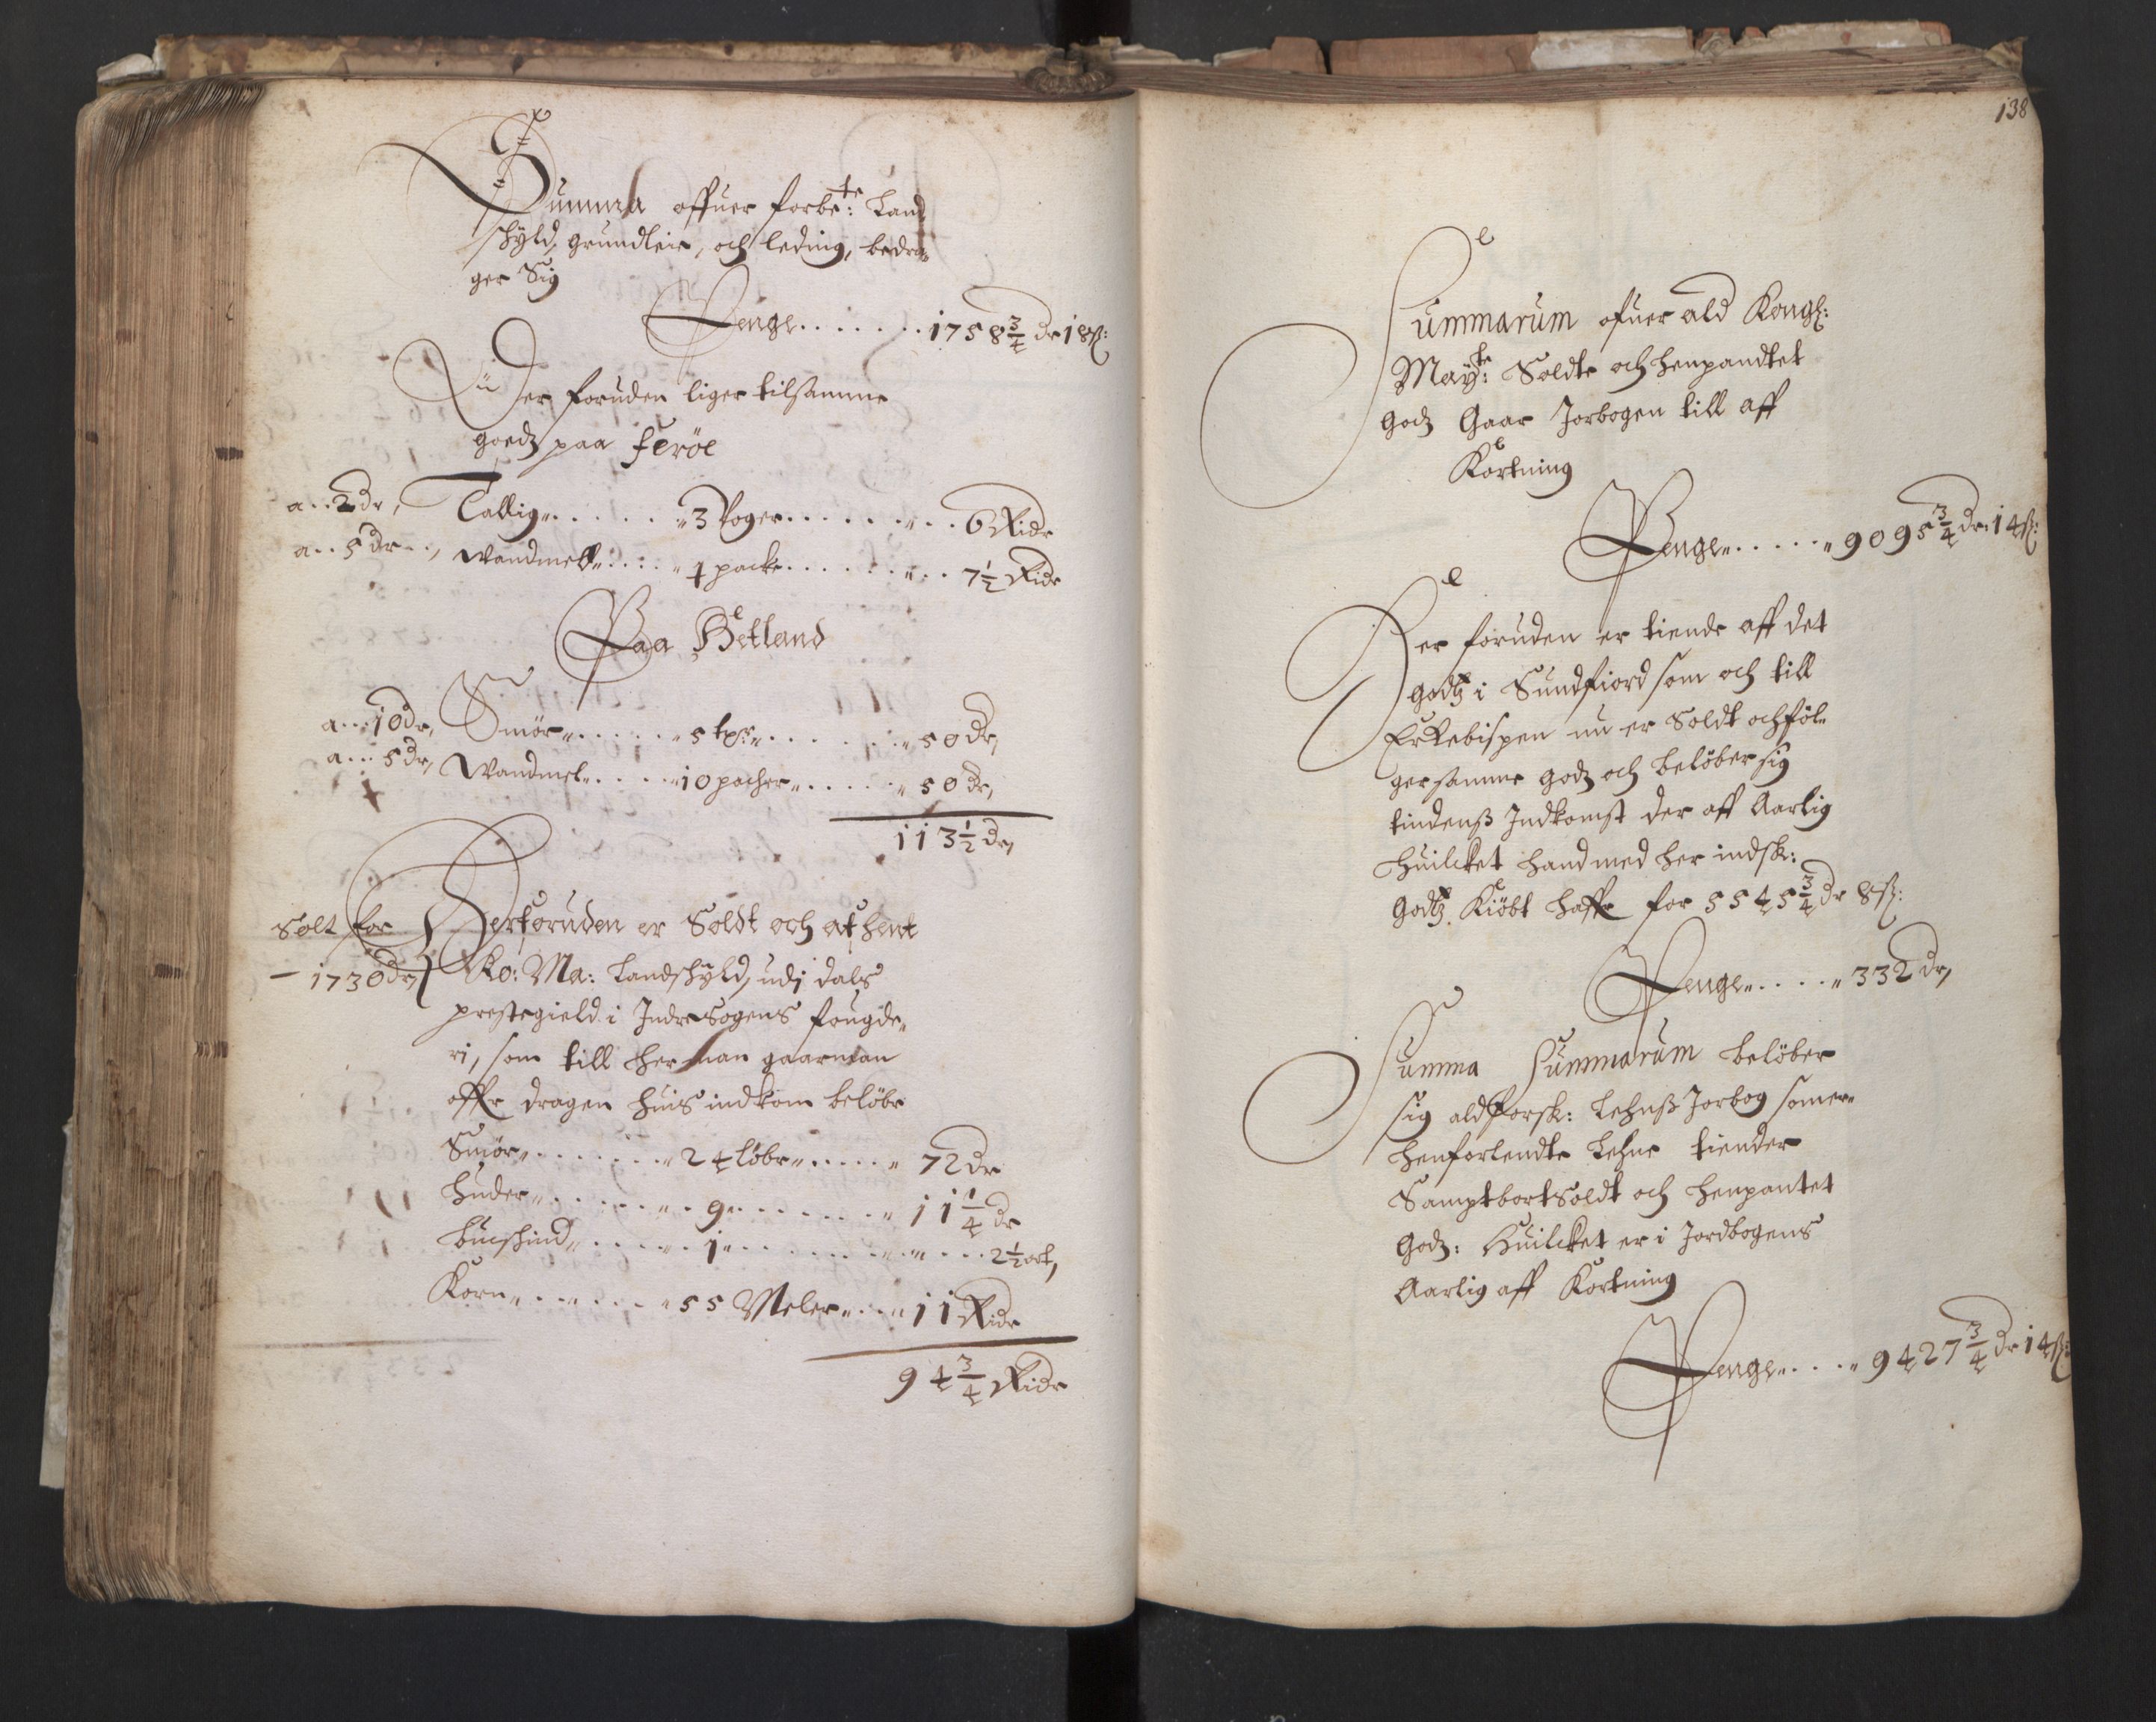 Summa offuer forbe:te Land
schÿld, grundleie, och leding, bedra
ger Sig
Penge ........ 1758 3/4 dr 18 ß:
Der foruden liger tilsamme
goedz paa feröe
a .. 2 dr, Tallig ...... 3 Voger ....... 6 Ridr
a .. 5 dr .., Wandmell ..... 1 packe ....... 7 1/2 Ridr
Paa Hetland
a ... 10 dr, Smör ...... 5 tpr ....... 50 dr,
a ... 5 dr, Wandmel ..... 10 packer ...... 50 dr,
113 1/2 dr,
Solt for Derforuden er Soldt och afhent
1730 dr, Ko: Ma: Landschÿld, udj dals
prestegield i Indresogens fougde
ri, som till Herman gaarman
offr dragen huis indkom belöbr
Smör ........ 24 löber ..... 72 dr
Huder ....... 9 ........ 11 1/4 dr
Buckschind ...... 1 ......... 2 1/2 ort,
Korn ....... 55 Meler .... 11 Ridr
94 3/4 Ridr
138
Summarum ofuer ald Kongl:
Maÿ:tz Soldte och henpandtet
godz Gaar Jorbogen till aff
Kortning
Penge ...... 9095 3/4 dr: 14 ß:
Der foruden er tiende aff det
godtz i Sundfiord som och till
Erkebispen nu er Soldt och föl
ger samme godz och belöber sig
tindenß Indkomst der aff Aarlig
huilcket hand med her indsk:
godtz Kiöbt haffr for 5545 3/4 dr 8 ß:
Penge ..... 332 dr,
Summa Summarum belöber
sig ald forsk: Lehnß Jorbog som er
henforlendte Lehne tiender
Sampt bortsoldt och henpantet
Godz: Huilcket er i Jordbogens
Aarlig aff Kortning
Penge ..... 9427 3/4 dr 14 ß: